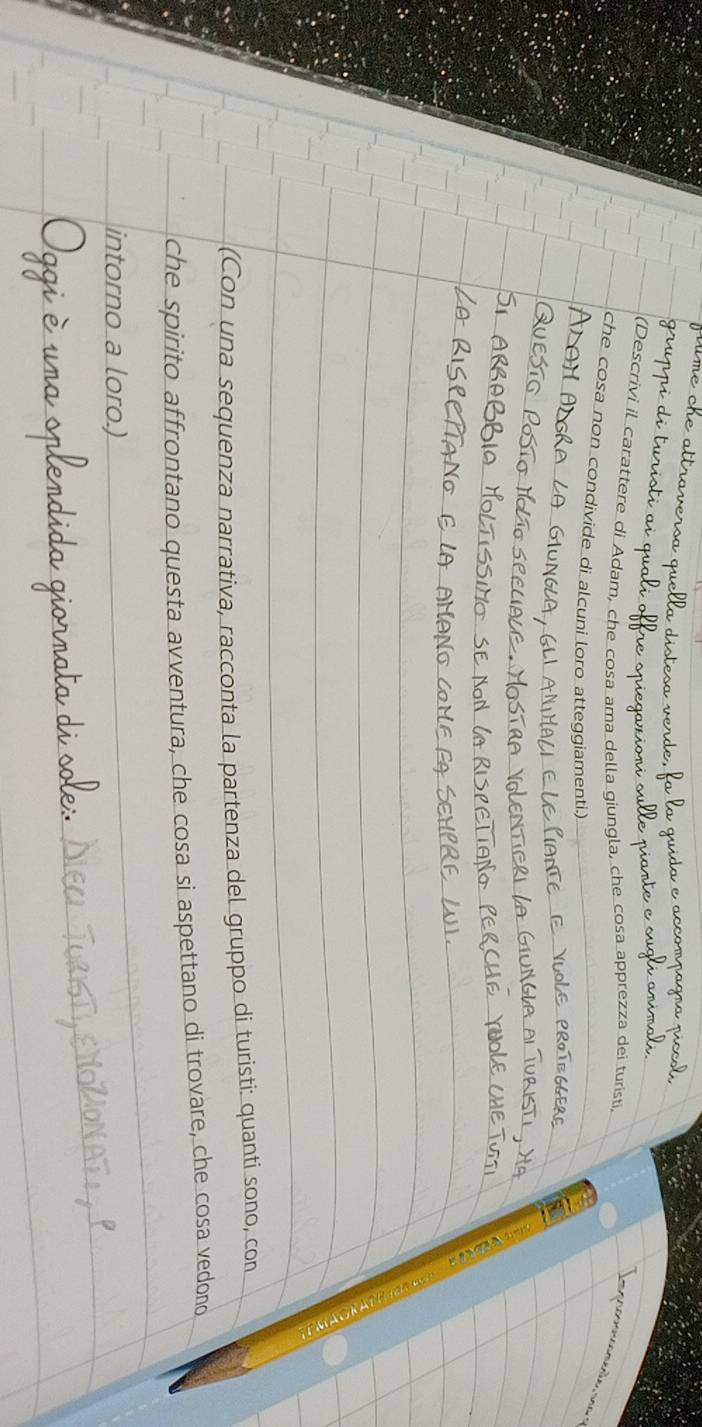 fiume che attraversa quella distesa verde, fa la guida e accompagna piccoli
gruppi di turisti ai quali offre spiegazioni sulle piante e sugli animali.
(Descrivi il carattere di Adam, che cosa ama della giungla, che cosa apprezza dei turisti,
che cosa non condivide di alcuni loro atteggiamenti.)
ADAM ADORA LA GIUNGLA, GLI ANIMALI E LE PIANTE E VUOLE PROTEGGERE
QUESTO POSTO MOLTO SPECIALE. MOSTRA VOLENTIERI LA GIUNGLA AI TURISTI, MA
SI ARRABBIA MOLTISSIMO SE NON LA RISPETTANO PERCHÈ VUOLE CHE TUTTI
LA RISPETTANO E LA AMANO COME FA SEMPRE LUI.
(Con una sequenza narrativa, racconta la partenza del gruppo di turisti: quanti sono, con
che spirito affrontano questa avventura, che cosa si aspettano di trovare, che cosa vedono
intorno a loro.)
Oggi è una splendida giornata di sole: DIECI TURISTI, EMOZIONATI, P
Improvvisamente, una
TEMAGRAPH
LYRA